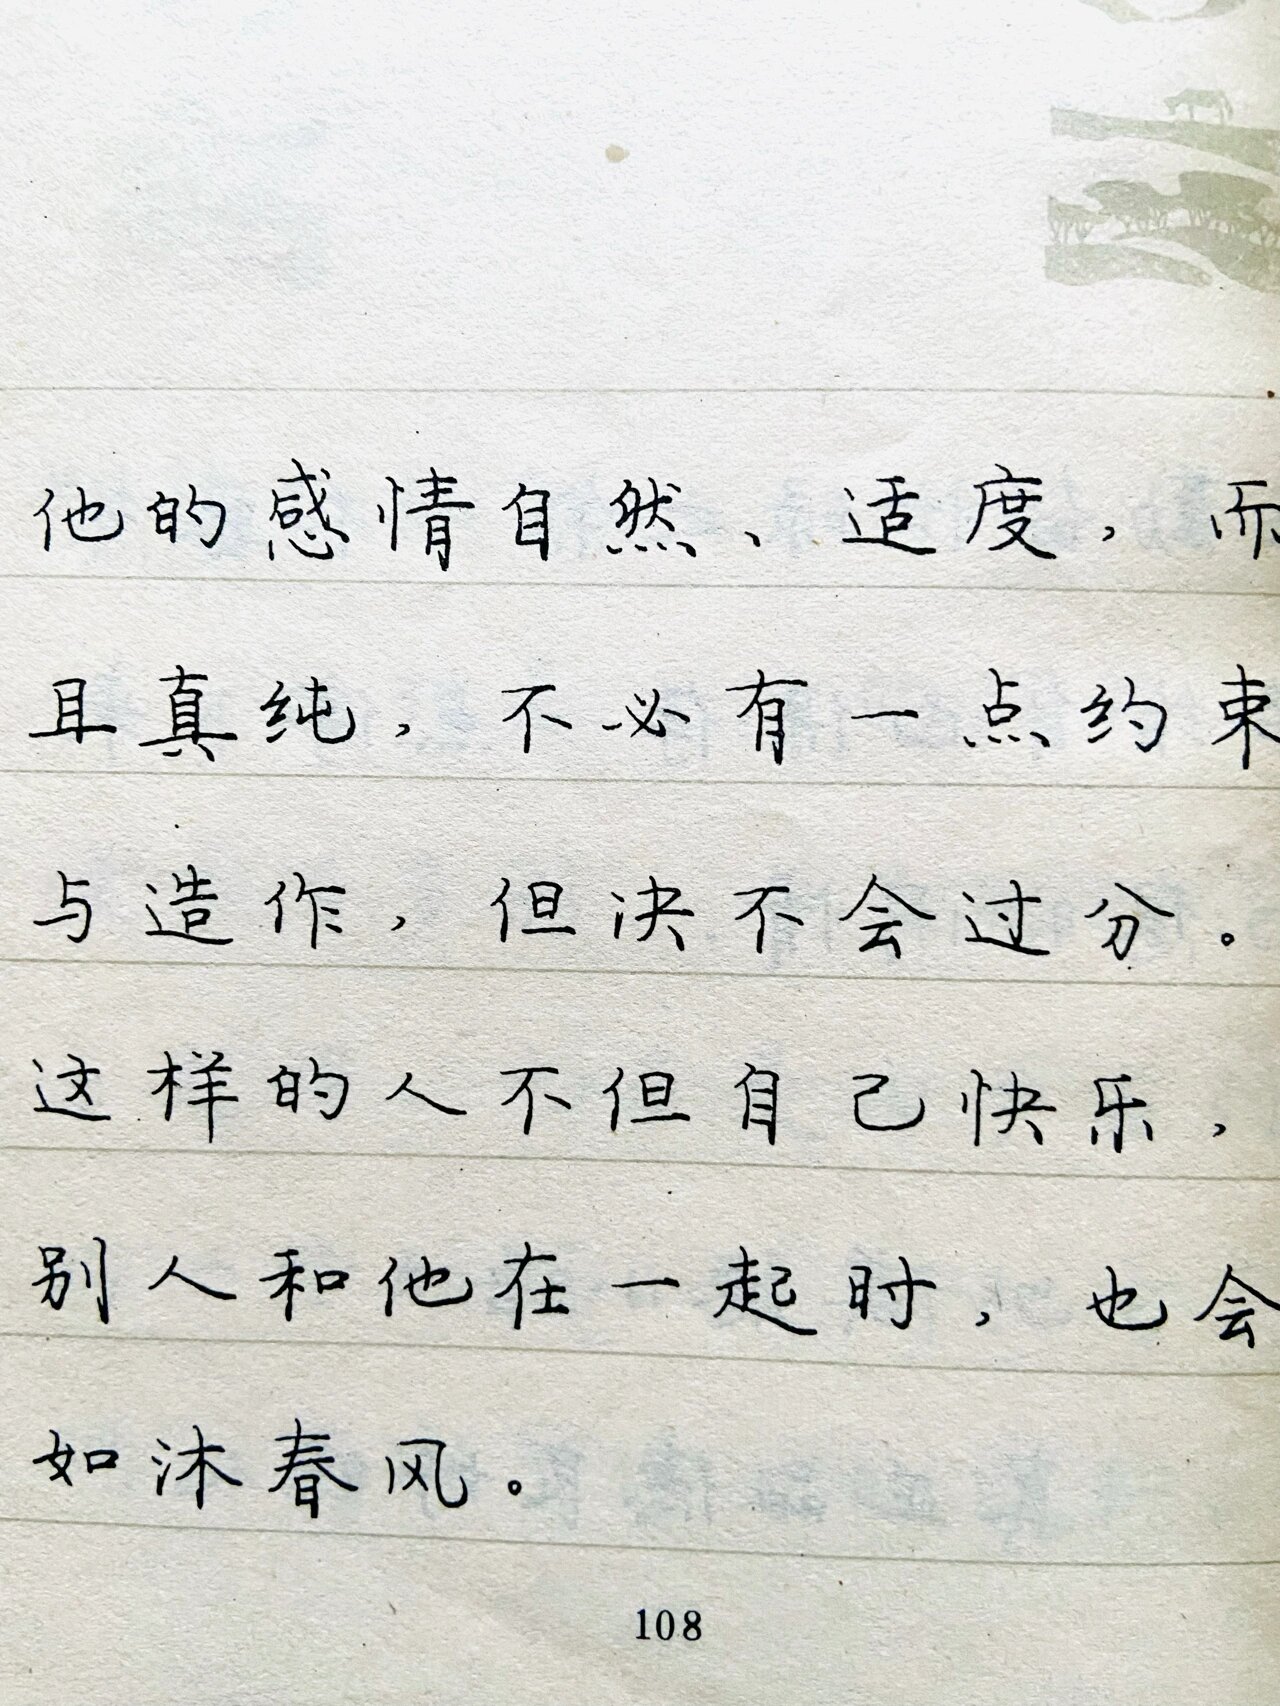 他的感情自然、适度，而
且真纯，不必有一点约束
与造作，但决不会过分。
这样的人不但自己快乐，
别人和他在一起时，也会
如沐春风。
108